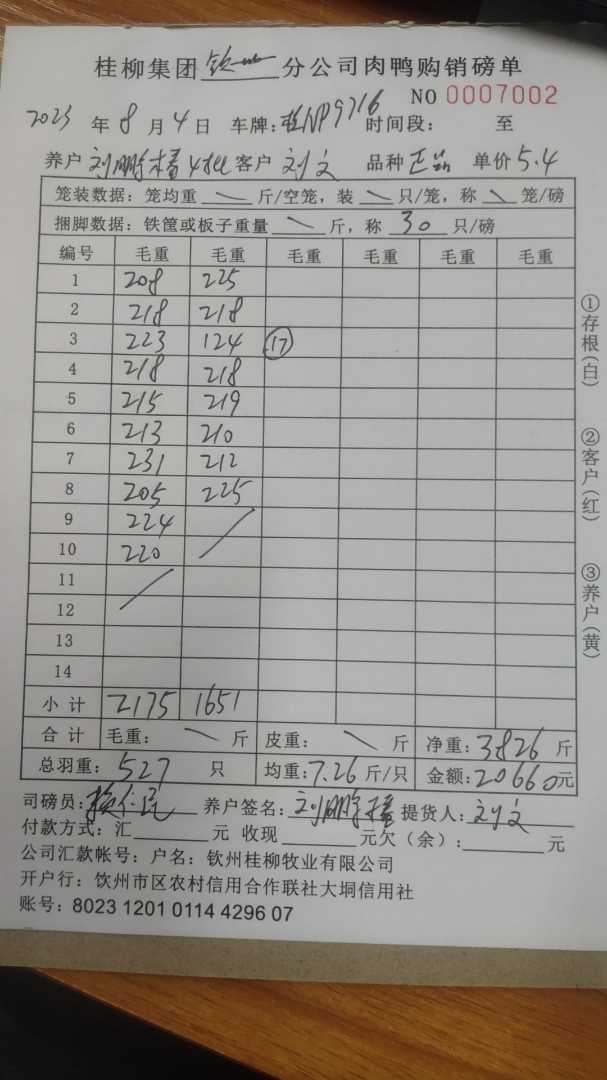 桂柳集团 分公司肉鸭购销磅单
NO 0007002
2023 年 8 月 4 日 车牌: 桂NP9716 时间段: 至
养户 刘鹏 4批 客户 刘文 品种 正品 单价 5.4
笼装数据: 笼均重 斤/空笼, 装 只/笼, 称 笼/磅
捆脚数据: 铁筐或板子重量 斤, 称 30 只/磅
编号 毛重 毛重 毛重 毛重 毛重 毛重
1 208 225
2 218 218
3 223 124 17
4 218 218
5 215 219
6 213 210
7 231 212
8 205 225
9 224
10 220
11
12
13
14
小计 2175 1651
合计 毛重: 斤 皮重: 斤 净重: 3826 斤
总羽重: 527 只 均重: 7.26 斤/只 金额: 20660元
司磅员: 养户签名: 刘鹏 提货人: 刘文
付款方式: 汇 元 收现 元欠(余): 元
公司汇款帐号: 户名: 钦州桂柳牧业有限公司
开户行: 饮州市区农村信用合作联社大垌信用社
账号: 8023 1201 0114 4296 07
①存根(白)
②客户(红)
③养户(黄)